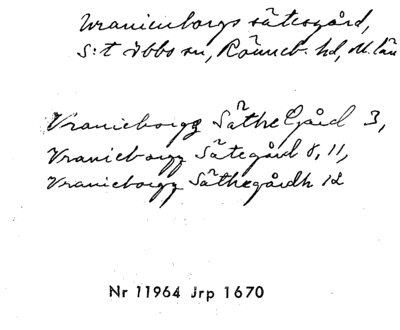 Uranienborgs sätesgård,
S:t Ibbs sn, Rönneb. hd, M. län
Vranieborgz Säthe Gård 3,
Vranieborgz Sätegård 8, 11,
Vranieborgz Säthegårdh 12
Nr 11964 Jrp 1670